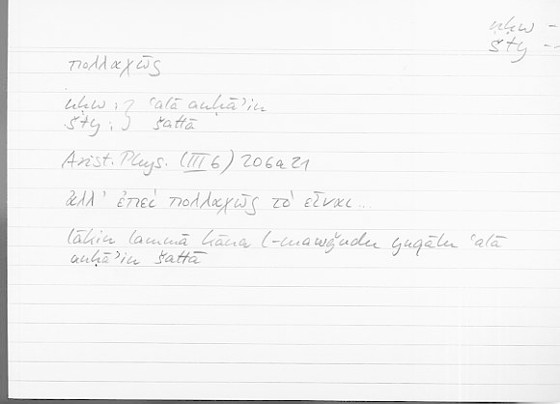 nḥw –
šty –
πολλαχῶς
nḥw : } ʿalā anḥāʾin
šty : } šattā
Arist. Phys. (III 6) 206a21
ἀλλ' ἐπεὶ πολλαχῶς τὸ εἶναι...
lākin lammā kāna l-mawǧūdu yuqālu ʿalā
anḥāʾin šattā